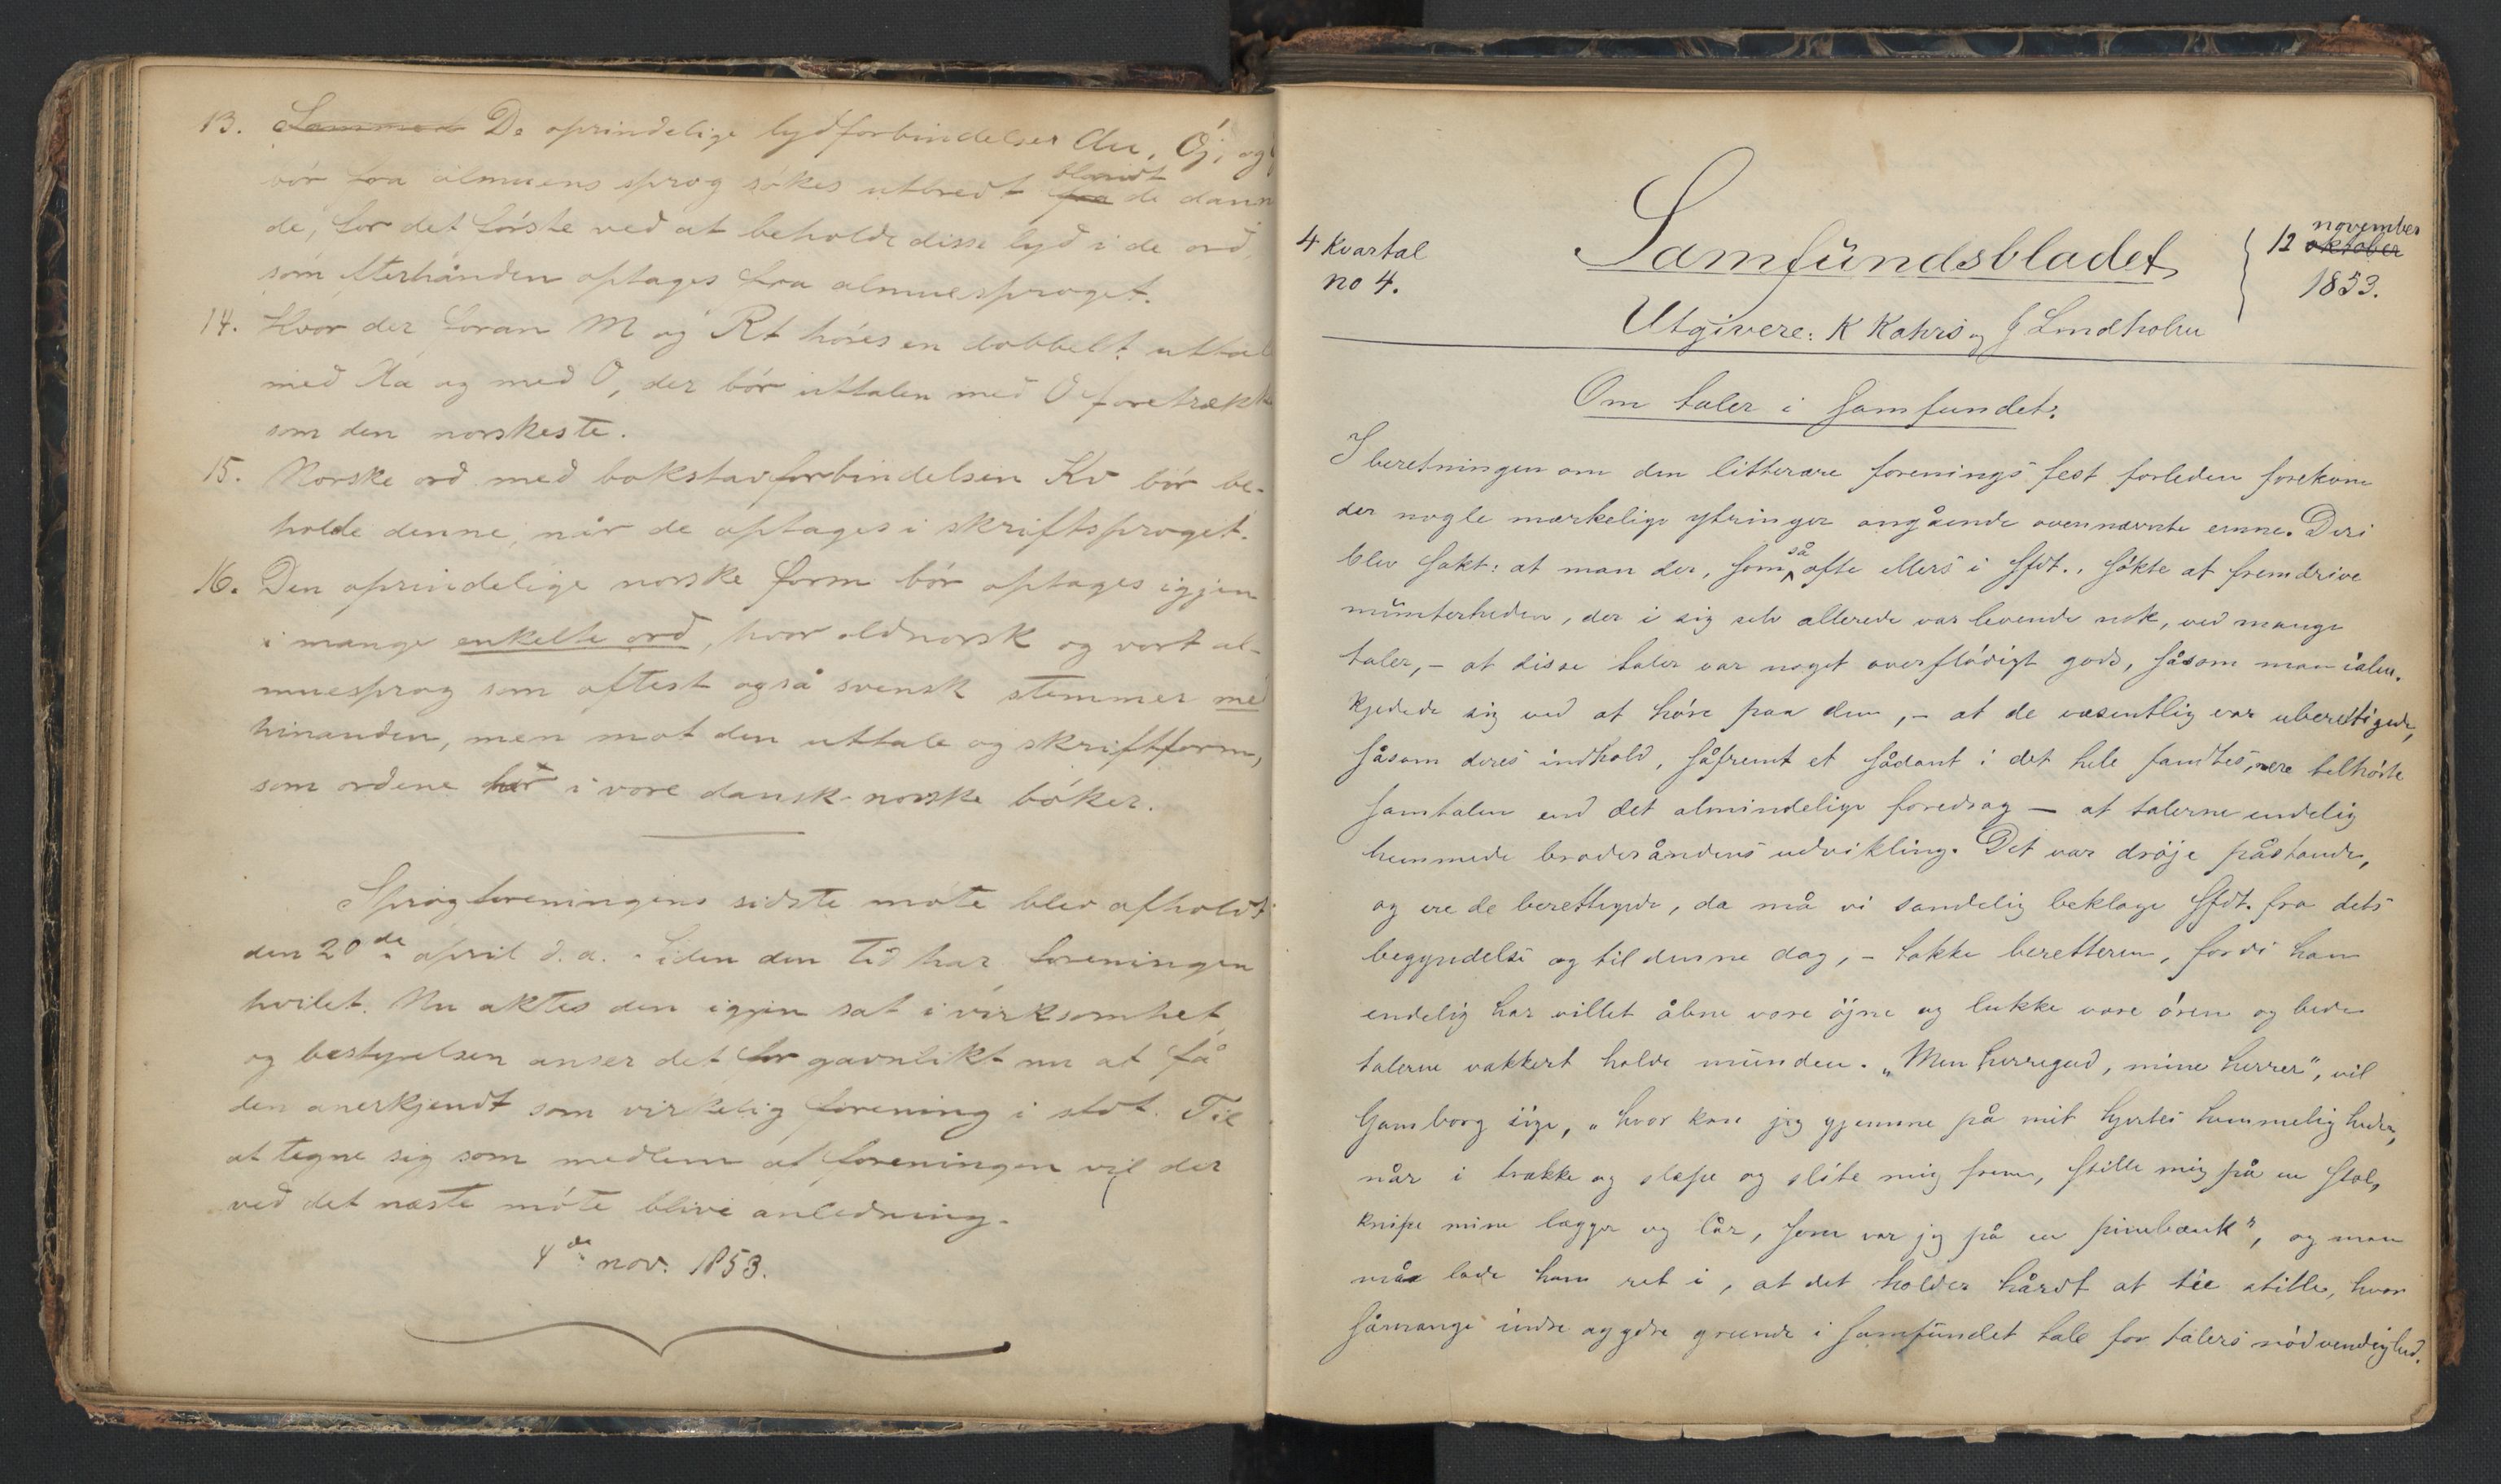 13. Sammed De oprindelige lydforbindelser Au, Öj, og
bör fra almuens sprog sökes utbredt fra blandt de dann
de, for det förste ved at beholde disse lyd i de ord,
som efterhånden optages fra almuesproget.
14. Hvor der foran M og Rt höres en dobbelt uttal
med Aa og med O, der bör uttalen med O foretrækk
som den norskeste.
15. Norske ord med bokstavforbindelsen Kv bör be-
holde denne, når de optages i skriftsproget.
16. Den oprindelige norske form bör optages igjen
i mange enkelte ord, hvor oldnorsk og vort al-
muesprog som oftest også svensk stemmer me
hinanden, men mot den uttale og skriftform,
som ordene har i vore dansk-norske böker.
Sprogforeningens sidste möte blev afholdt
den 20de april d.a. Siden den tid har foreningen
hvilet. Nu aktes den igjen sat i virksomhet,
og bestyrelsen anser det for gavnlikt nu at få
den anerkjendt som virkelig forening i sfdt. Til
at tegne sig som medlem af foreningen vil der
ved det næste möte blive anledning.
4de nov. 1853.
4 Kvartal
no 4.
Samfundsbladet
12 oktober november
1853.
Utgivere: K Kahrs og J Lindholm
Om taler i samfundet.
I beretningen om den litterære forenings fest forleden forekom
der nogle mærkelige ytringer angående ovennævnte emne. Deri
blev sakt: at man der, som så ofte ellers i sfdt., sökte at fremdrive
munterheden, der i sig selv allerede var levende nok, ved mange
taler, - at disse taler var noget overflödigt gods, såsom man ialm.
kjedede sig ved at höre paa dem, - at de væsentlig var uberettigede,
såsom deres indhold, såfremt et sådant i det hele fandtes, mere tilhörte
samtalen end det almindelige foredrag - at talerne endelig
hemmede broderåndens udvikling. Det var dröje påstande,
og ere de berettigede, da må vi sandelig beklage sfdt. fra dets
begyndelse og til denne dag, - takke beretteren, fordi han
endelig har villet åbne vore öjne og lukke vore ören og bede
talerne vakkert holde munden. "Men herregud, mine herrer", vil
Gamborg sige, "hvor kan jeg gjemme på mit hjertes hemmeligheder,
når i trække og slæpe og slite mig frem, stille mig på en stol,
knipe mine lægge og lår, som var jeg på en pinebænk", og man
må lade ham ret i, at det holder hårdt at tie stille, hvor
såmange indre og ydre grunde i samfundet tale for talers nödvendighed.